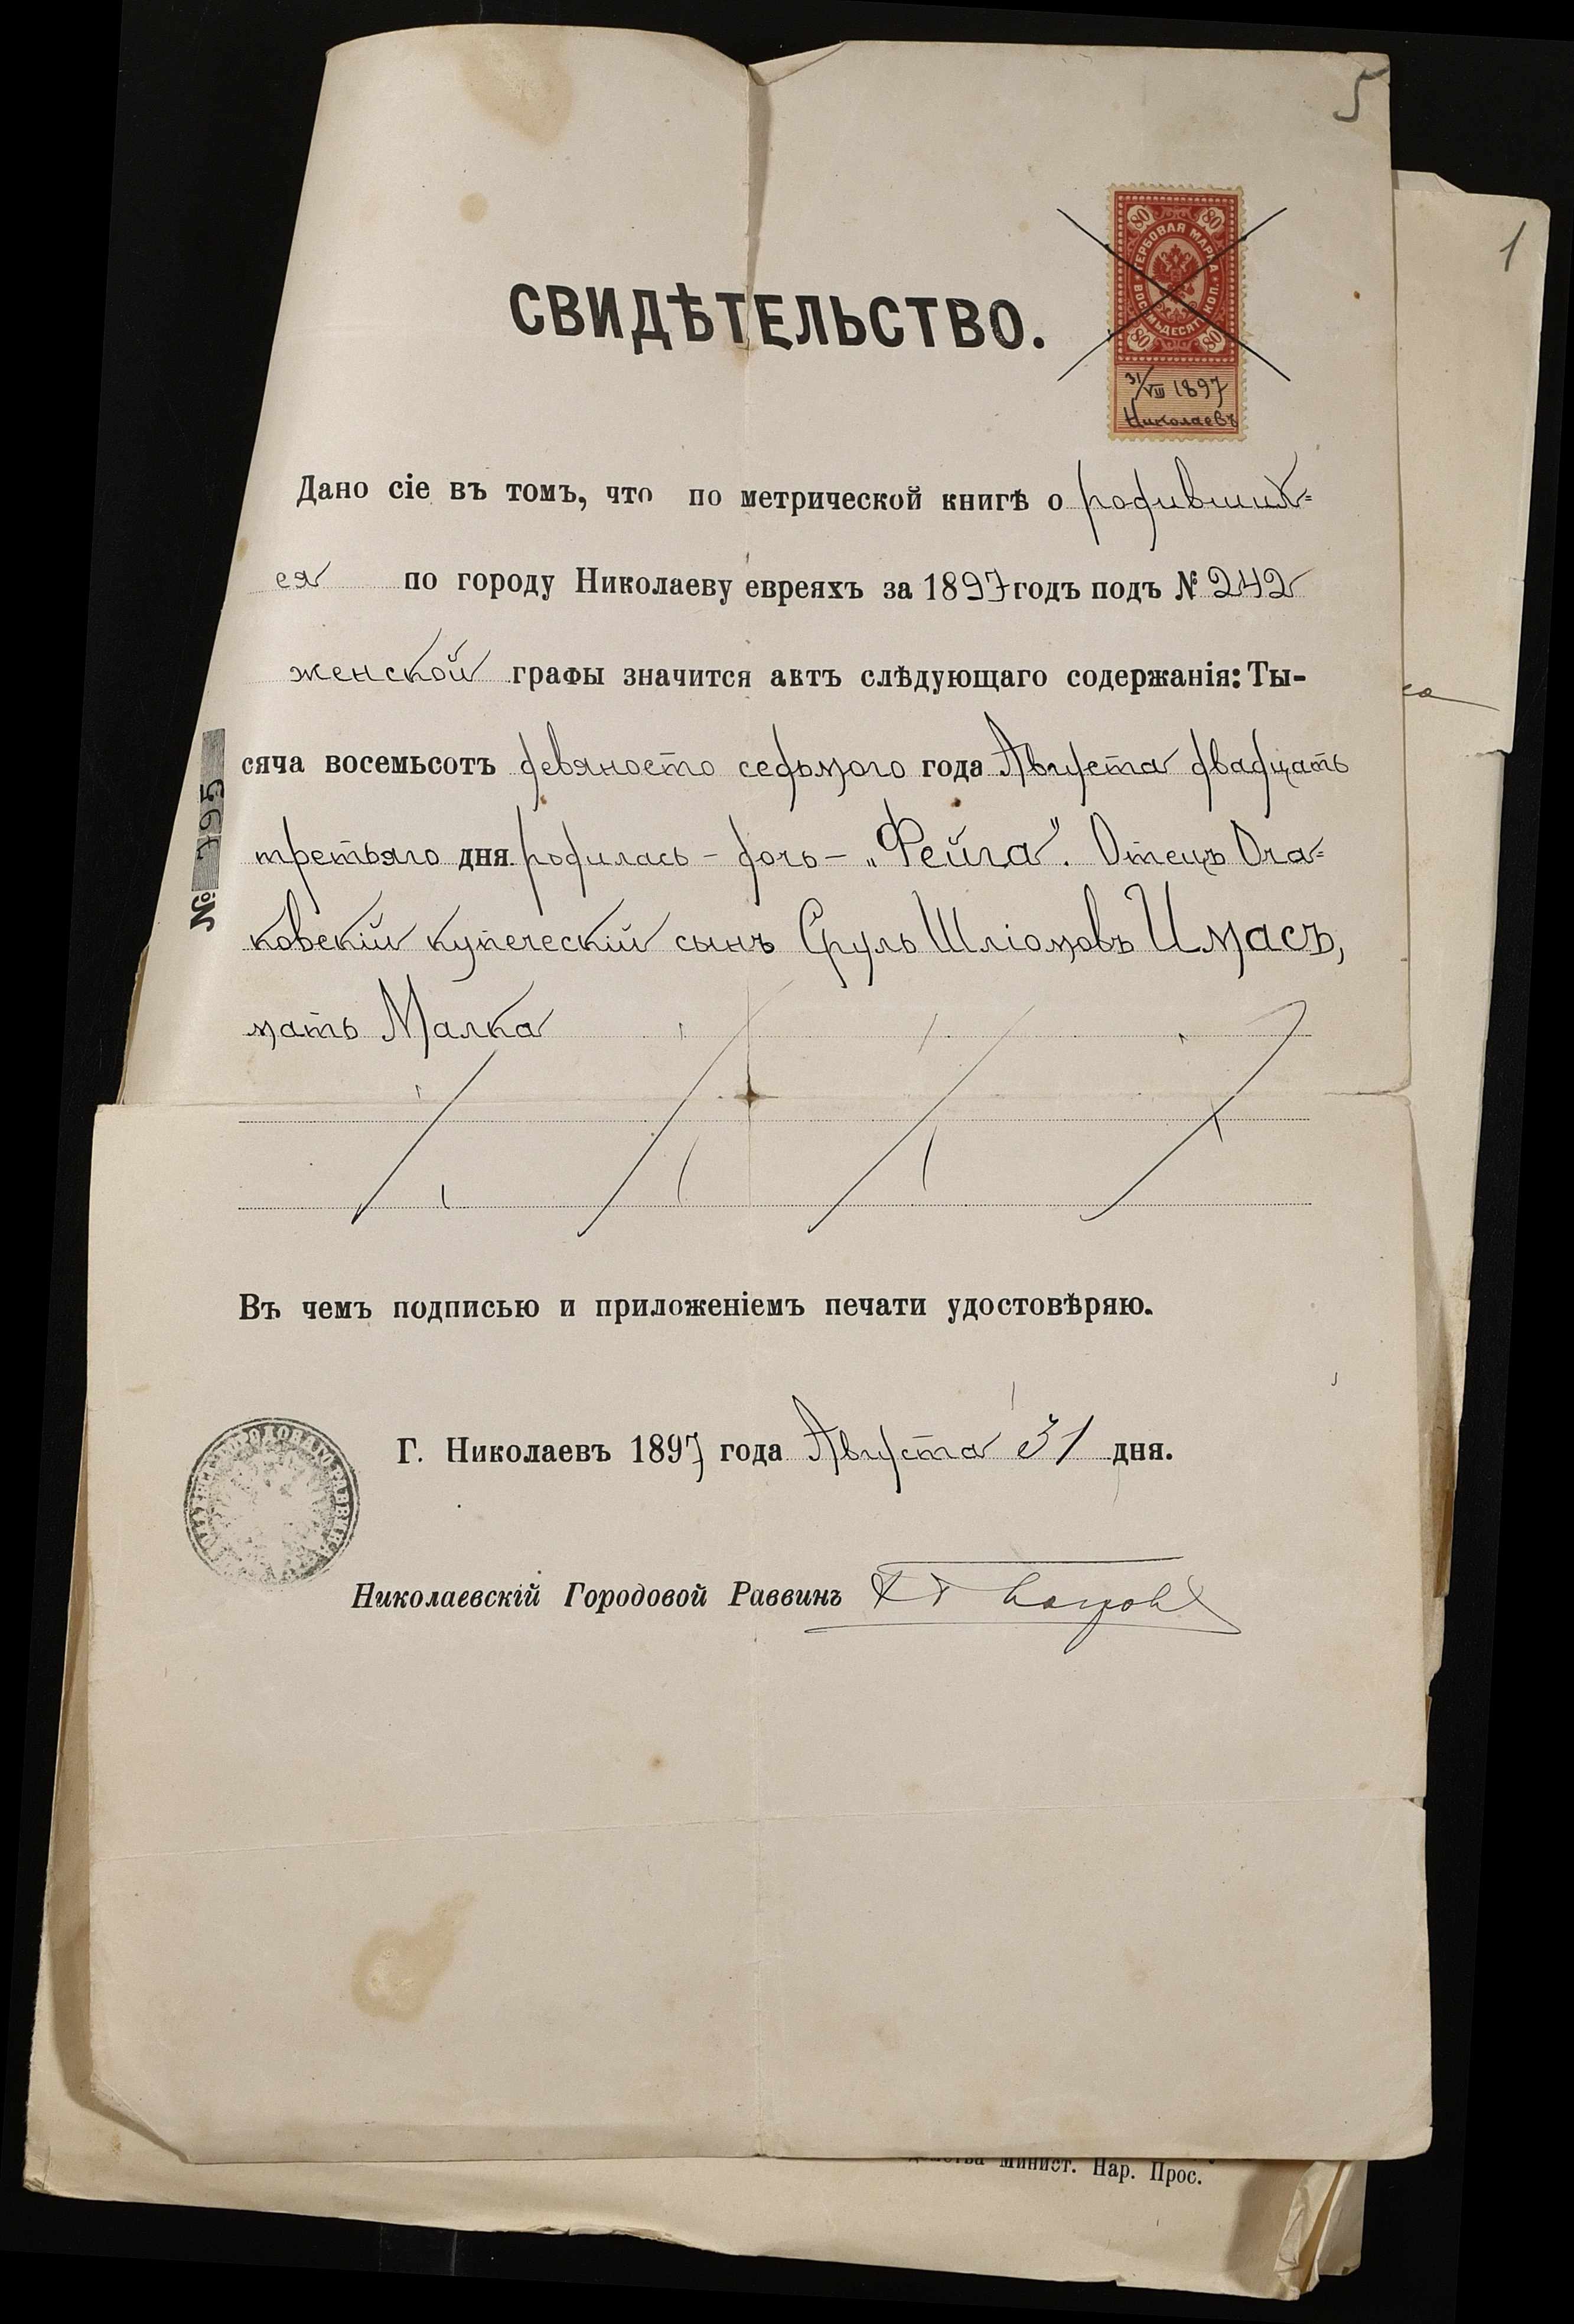 5
1
80 80
ГЕРБОВАЯ МАРКА
ВОСЕМЬДЕСЯТЪ КОП.
80 80
31/VIII 1897
Николаевъ
СВИДѢТЕЛЬСТВО.
Дано сіе въ томъ, что по метрической книгѣ о родивших=
ся по городу Николаеву евреяхъ за 1897 годъ подъ № 242
женской графы значится актъ слѣдующаго содержанія: Ты-
сяча восемьсотъ девяносто седьмого года Августа двадцать
третьяго дня родилась – дочь – „Фейга". Отецъ Оча=
ковскій купеческій сынъ Сруль Шліомовъ Имасъ,
мать Малка
№ 795
Въ чемъ подписью и приложеніемъ печати удостовѣряю.
Г. Николаевъ 1897 года Августа 31 дня.
Николаевскій Городовой Раввинъ
Минист. Нар. Прос.